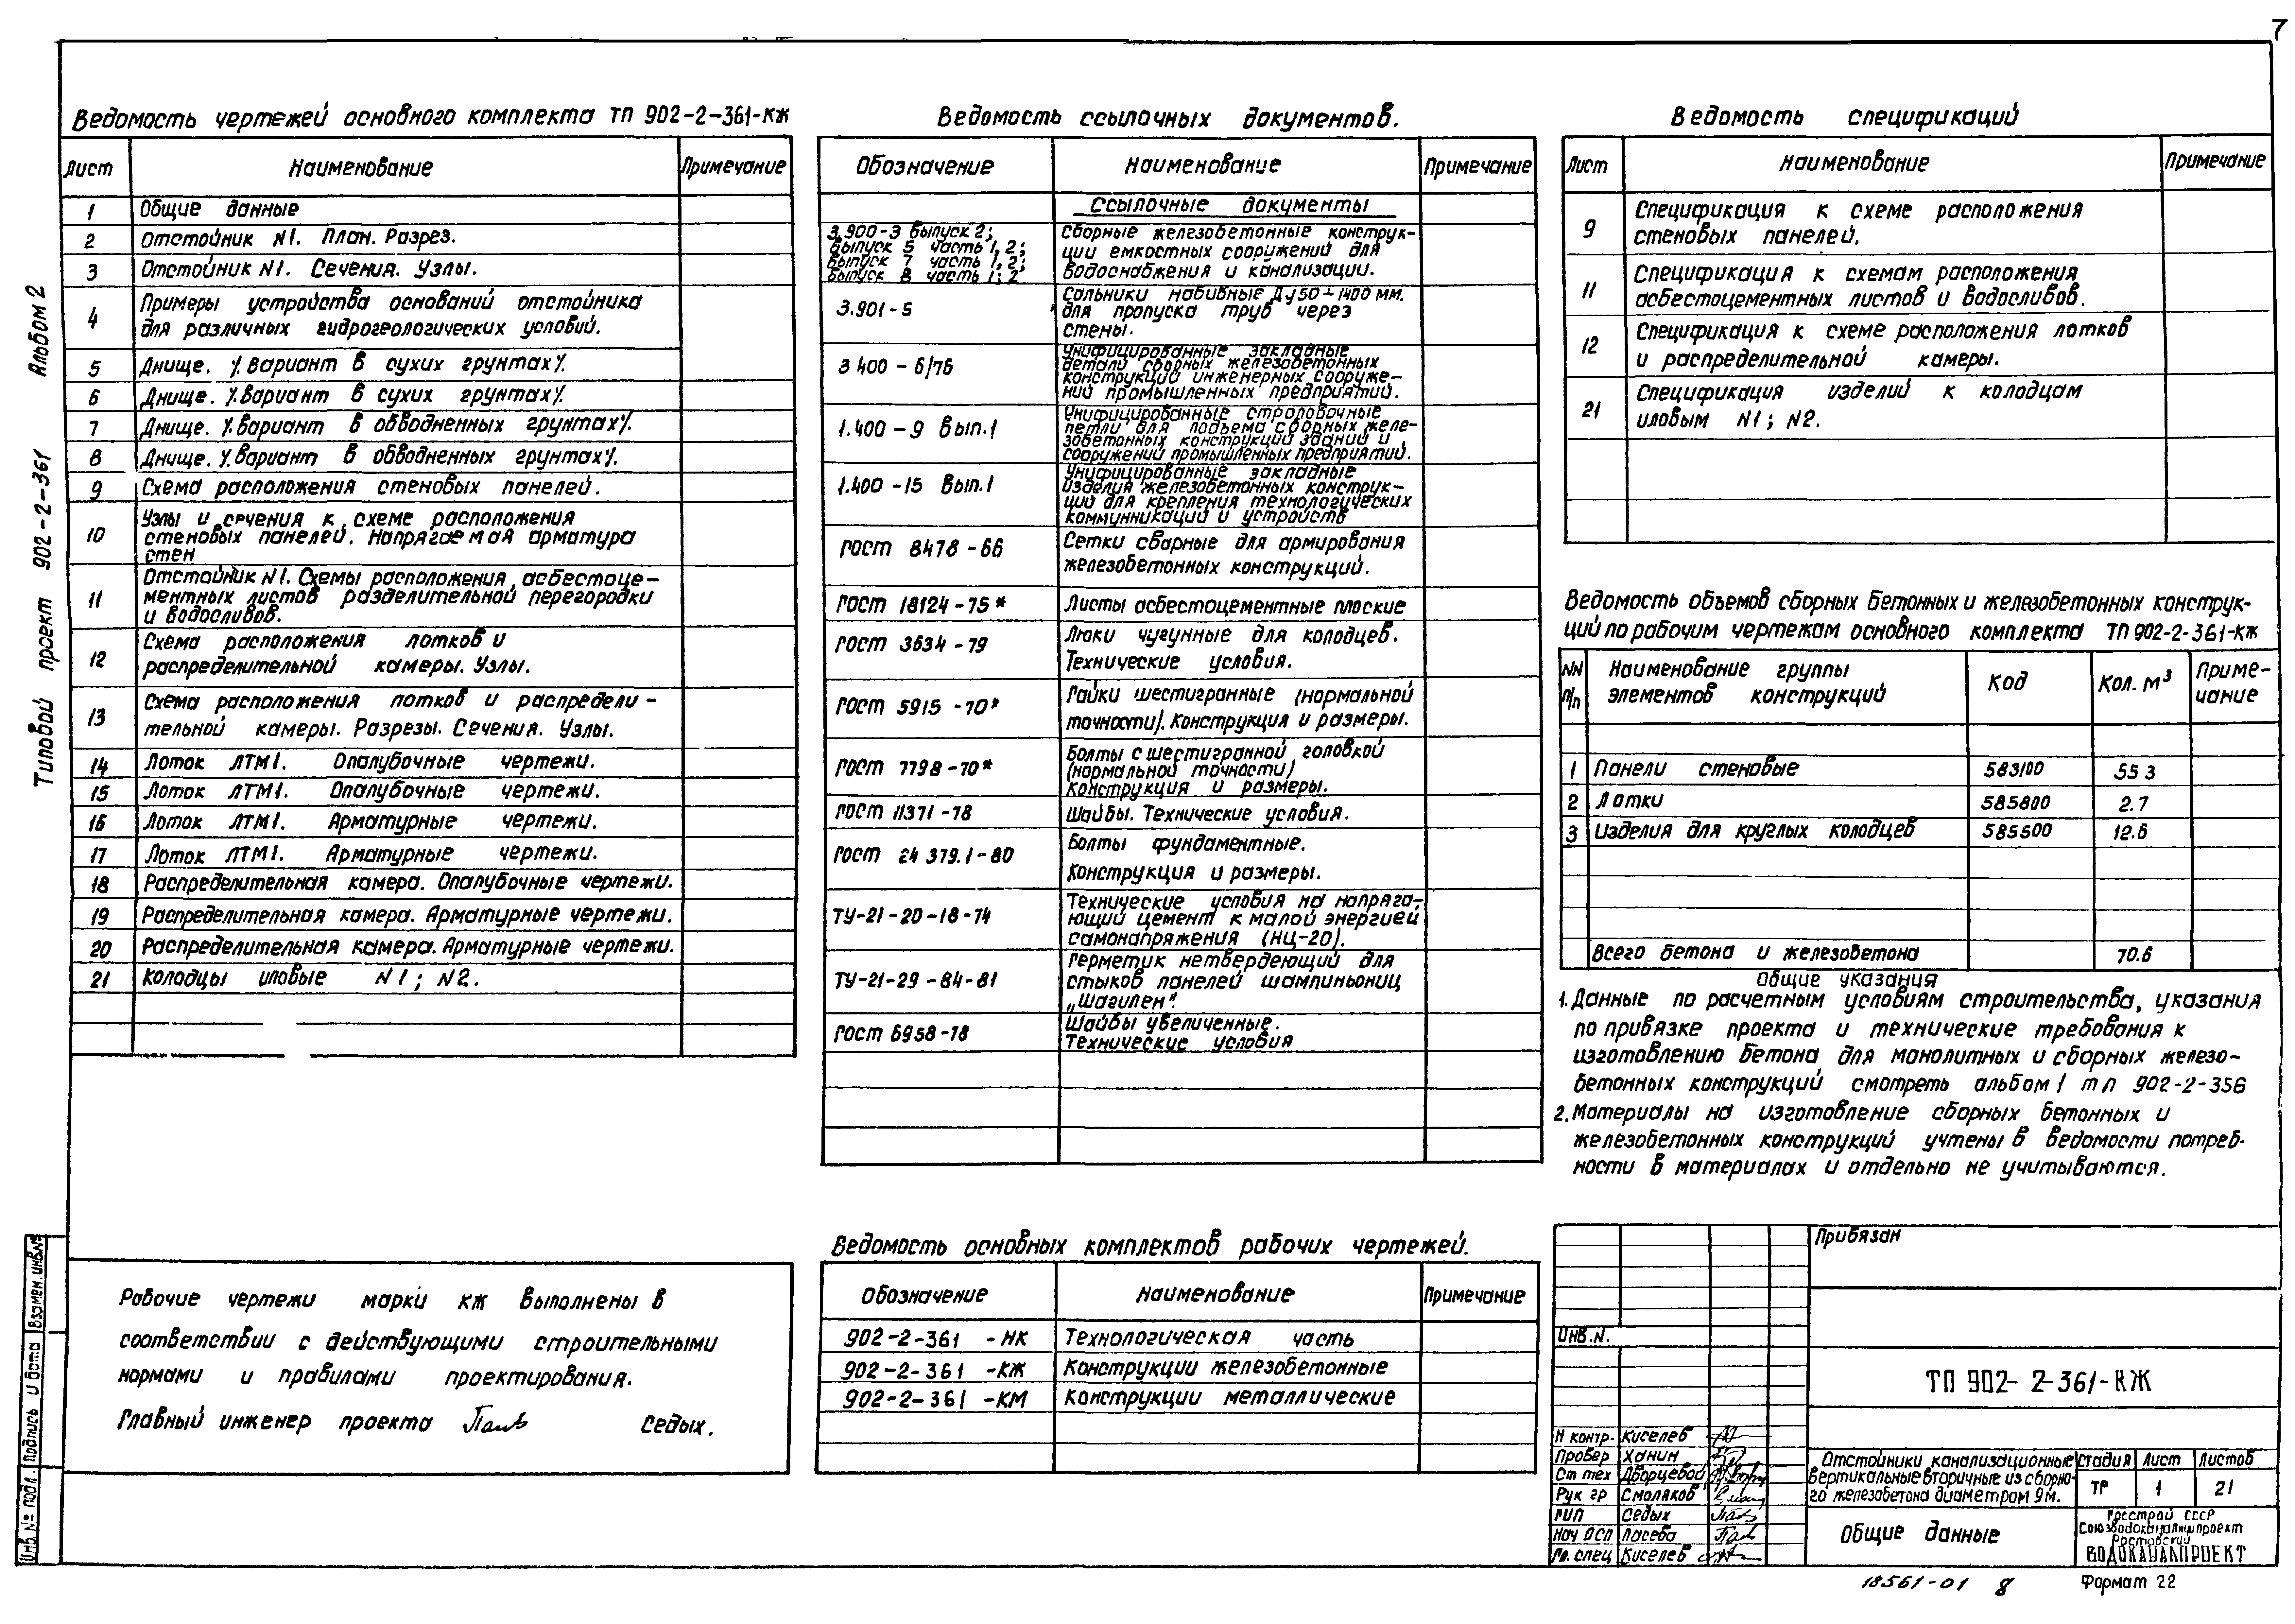 7
Ведомость чертежей основного комплекта ТП 902-2-361-КЖ
Лист Наименование Примечание
1 Общие данные
2 Отстойник N1. План. Разрез.
3 Отстойник N1. Сечения. Узлы.
4 Примеры устройства оснований отстойника
для различных гидрогеологических условий.
5 Днище. /. Вариант в сухих грунтах /.
6 Днище. /. Вариант в сухих грунтах /.
7 Днище. /. Вариант в обводненных грунтах /.
8 Днище. /. Вариант в обводненных грунтах /.
9 Схема расположения стеновых панелей.
10 Узлы и сечения к схеме расположения
стеновых панелей. Напрягаемая арматура
стен
11 Отстойник N1. Схемы расположения асбестоце-
ментных листов разделительной перегородки
и водосливов.
12 Схема расположения лотков и
распределительной камеры. Узлы.
13 Схема расположения лотков и распредели-
тельной камеры. Разрезы. Сечения. Узлы.
14 Лоток ЛТМ1. Опалубочные чертежи.
15 Лоток ЛТМ1. Опалубочные чертежи.
16 Лоток ЛТМ1. Арматурные чертежи.
17 Лоток ЛТМ1. Арматурные чертежи.
18 Распределительная камера. Опалубочные чертежи.
19 Распределительная камера. Арматурные чертежи.
20 Распределительная камера. Арматурные чертежи.
21 Колодцы иловые N1; N2.
Рабочие чертежи марки КЖ выполнены в
соответствии с действующими строительными
нормами и правилами проектирования.
Главный инженер проекта Седых.
Ведомость ссылочных документов.
Обозначение Наименование Примечание
Ссылочные документы
3.900-3 Выпуск 2;
Выпуск 5 часть 1, 2;
Выпуск 7 часть 1, 2;
Выпуск 8 часть 1; 2
Сборные железобетонные конструк-
ции емкостных сооружений для
водоснабжения и канализации.
3.901-5 Сальники набивные Ду50÷1400 мм.
для пропуска труб через
стены.
3 400-6/76 Унифицированные закладные
детали сборных железобетонных
конструкций инженерных сооруже-
ний промышленных предприятий.
1.400-9 Вып.1 Унифицированные строповочные
петли для подъема сборных желе-
зобетонных конструкций зданий и
сооружений промышленных предприятий.
1.400-15 Вып.1 Унифицированные закладные
изделия железобетонных конструк-
ций для крепления технологических
коммунникаций и устройств
ГОСТ 8478-66 Сетки сварные для армирования
железобетонных конструкций.
ГОСТ 18124-75* Листы асбестоцементные плоские
ГОСТ 3634-79 Люки чугунные для колодцев.
Технические условия.
ГОСТ 5915-70* Гайки шестигранные (нормальной
точности). Конструкция и размеры.
ГОСТ 7798-70* Болты с шестигранной головкой
(нормальной точности)
Конструкция и размеры.
ГОСТ 11371-78 Шайбы. Технические условия.
ГОСТ 24 379.1-80 Болты фундаментные.
Конструкция и размеры.
ТУ-21-20-18-74 Технические условия на напряга-
ющий цемент к малой энергией
самонапряжения (НЦ-20).
ТУ-21-29-84-81 Герметик нетвердеющий для
стыков панелей шампиньониц
„Шагилен".
ГОСТ 6958-78 Шайбы увеличенные.
Технические условия
Ведомость основных комплектов рабочих чертежей.
Обозначение Наименование Примечание
902-2-361 -НК Технологическая часть
902-2-361 -КЖ Конструкции железобетонные
902-2-361 -КМ Конструкции металлические
Ведомость спецификаций
Лист Наименование Примечание
9 Спецификация к схеме расположения
стеновых панелей.
11 Спецификация к схемам расположения
асбестоцементных листов и водосливов.
12 Спецификация к схеме расположения лотков
и распределительной камеры.
21 Спецификация изделий к колодцам
иловым N1; N2.
Ведомость объемов сборных бетонных и железобетонных конструк-
ций по рабочим чертежам основного комплекта ТП 902-2-361-КЖ
NN п/п Наименование группы элементов конструкций Код Кол. м³ Приме-чание
1 Панели стеновые 583100 55 3
2 Лотки 585800 2.7
3 Изделия для круглых колодцев 585500 12.6
Всего бетона и железобетона 70.6
Общие указания
1. Данные по расчетным условиям строительства, указания
по привязке проекта и технические требования к
изготовлению бетона для монолитных и сборных железо-
бетонных конструкций смотреть альбом 1 тп 902-2-356
2. Материалы на изготовление сборных бетонных и
железобетонных конструкций учтены в ведомости потреб-
ности в материалах и отдельно не учитываются.
Привязан
Инв.N.
ТП 902-2-361-КЖ
Н контр. Киселев
Провер Ханин
Ст тех Дворцевой
Рук гр Смоляков
ГИП Седых
Нач ОСП
Гл. спец Киселев
Отстойники канализационные
вертикальные вторичные из сборно-
го железобетона диаметром 9м.
Стадия Лист Листов
ТР 1 21
Общие данные
Госстрой СССР
Союзводоканалниипроект
Ростовский
ВОДОКАНАЛПРОЕКТ
18561-01 8
Формат 22
Типовой проект 902-2-361 Альбом 2
Инв. № подл. Подпись и дата Взамен. инв.№